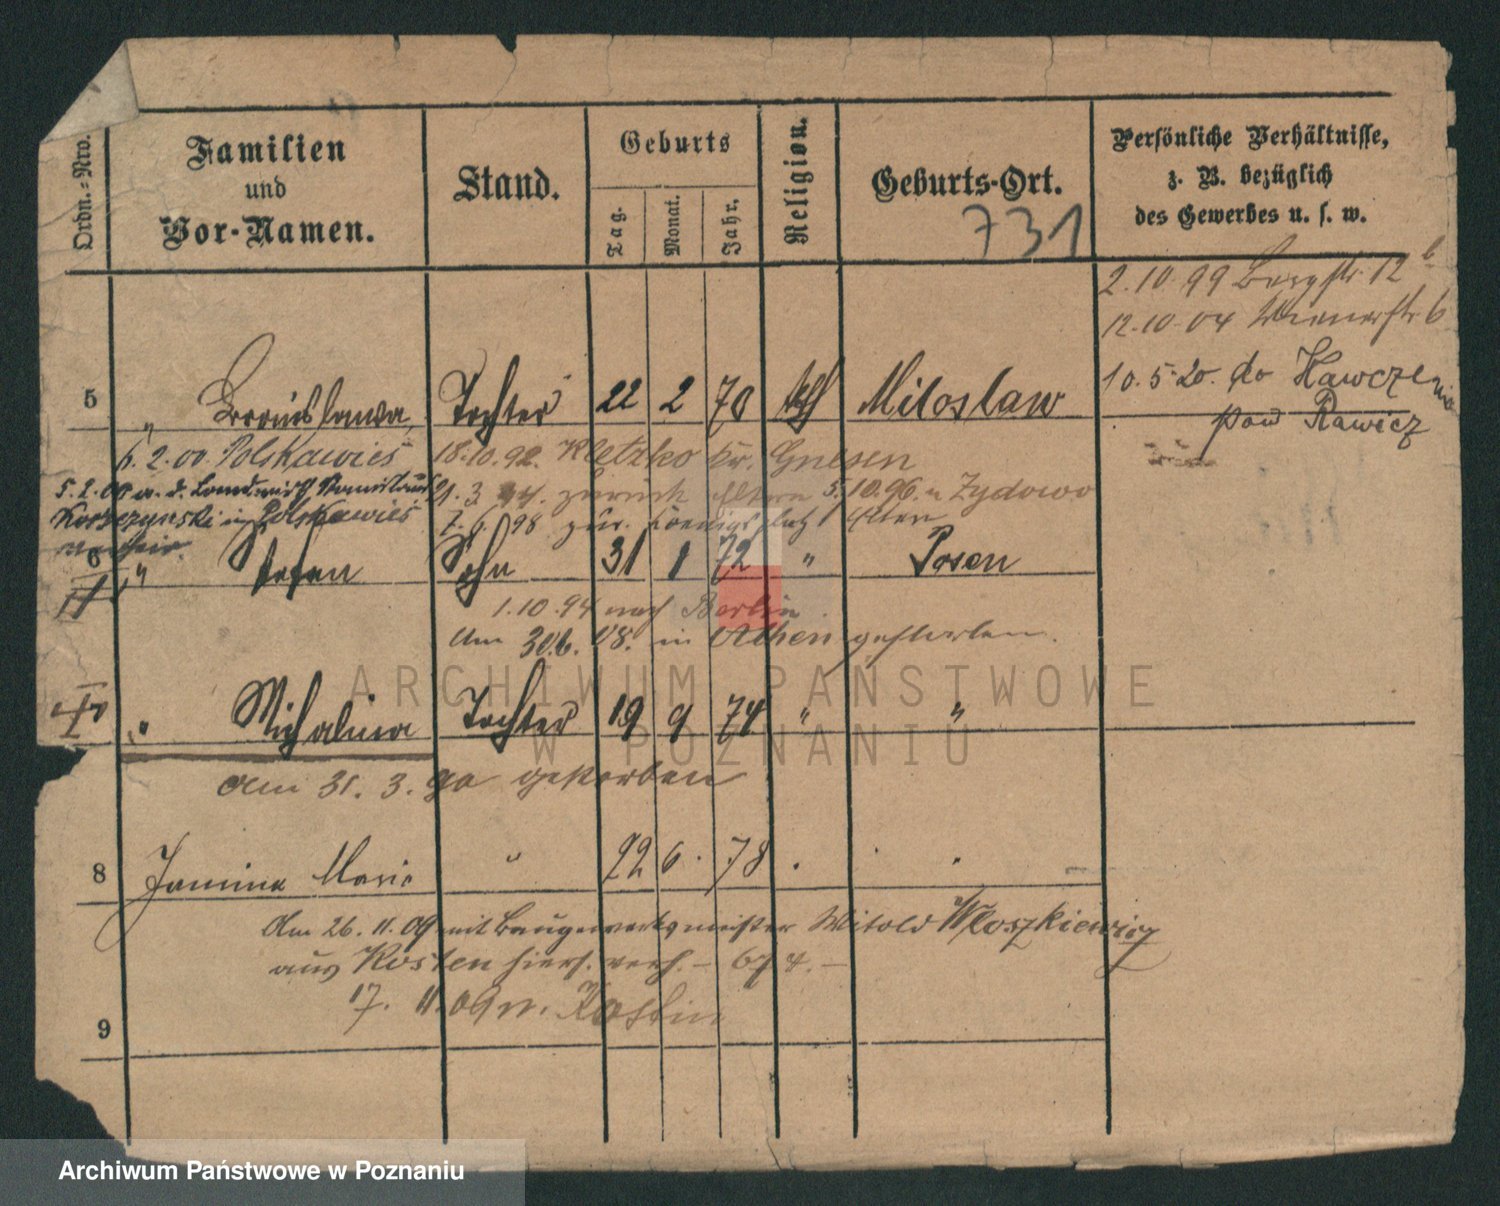 Ordn.-Nro.
Familien
und
Vor-Namen.
Stand.
Geburts
Tag.
Monat.
Jahr.
Religion.
Geburts-Ort.
731
Persönliche Verhältnisse,
z. B. bezüglich
des Gewerbes u. s. w.
2.10.99 Bergstr. 12 b
12.10.04 Wienerstr 6
10.5.20. do Hawcze
pow Rawicz
5 " Bronislawa, Tochter 22 2 70 kth Miloslaw
6.2.00 Polskawies
18.10.92. Kletzko Kr. Gnesen
5.2.00 a. d. Landwirth Stanislaus
21.3.94. zurück Eltern 5.10.96. n Zydowo
in Polskawies
7.6.98 zur. Koenigsplatz 1 Eltern
6 " Stefan Sohn 31 1 72 " Posen
1.10.94 nach Berlin.
Am 30.6. 08. in Athen gestorben.
" Michalina Tochter 19 9 74 " "
Am 31. 3. 90 gestorben
8 Janina Marie " 22 6. 78
Am 26. 11. 09 mit Baugewerksmeister Witold Wloszkiewicz
aus Kosten hiers. verh. – 674. –
17. 11. 09 n. Kosten
9
ARCHIWUM PAŃSTWOWE
W POZNANIU
Archiwum Państwowe w Poznaniu